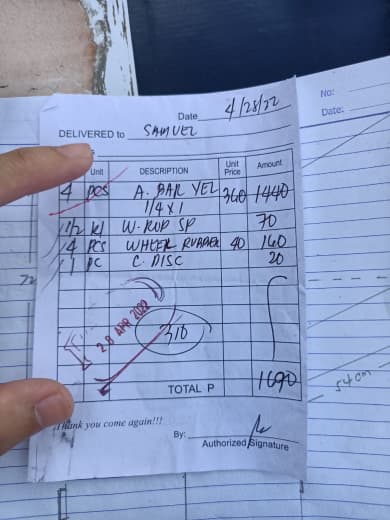 No:
Date:
Date 4/28/22
DELIVERED to SAMUEL
Unit DESCRIPTION Unit Price Amount
4 pcs A. BAR YEL 360 1440
1/4 x 1
1/2 kl W. ROD SP 70
4 PCS WHEEL RUBBER 40 160
1 PC C. DISC 20
28 APR 2022
310
TOTAL P 1690
Thank you come again!!!
By:
Authorized Signature
54 cm